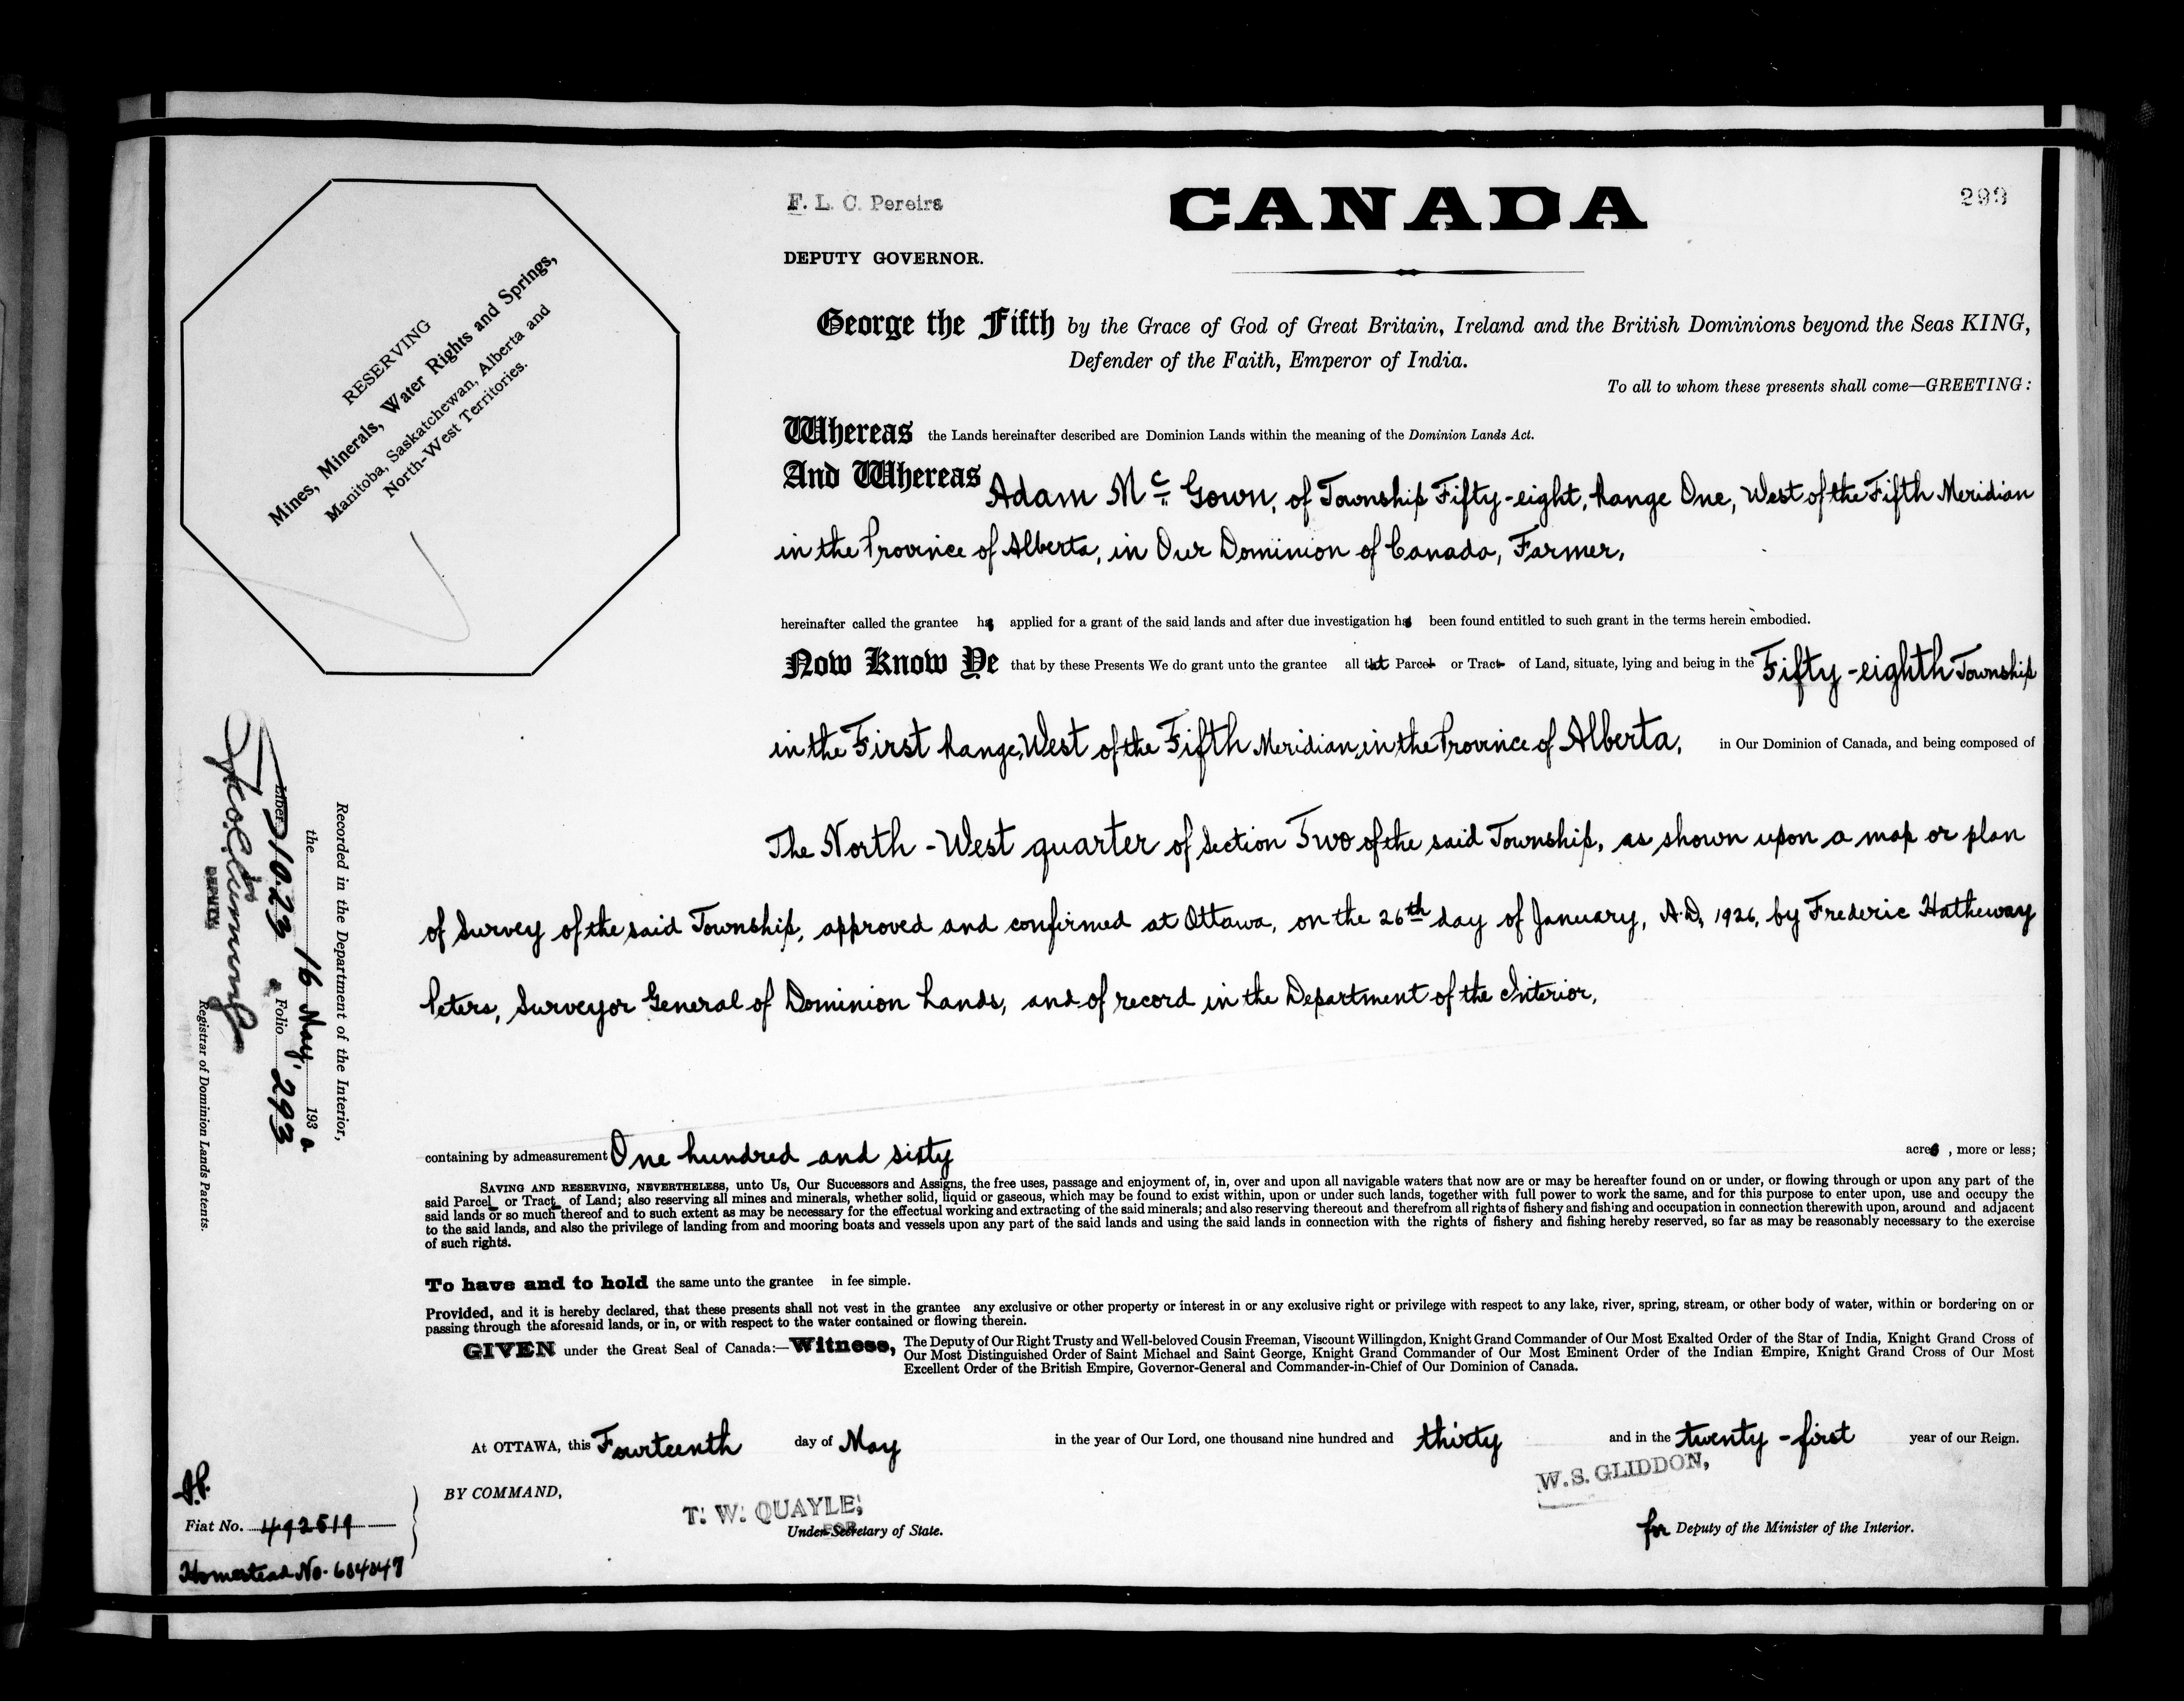 F. L. C. Pereira
CANADA
293
DEPUTY GOVERNOR.
George the Fifth by the Grace of God of Great Britain, Ireland and the British Dominions beyond the Seas KING,
Defender of the Faith, Emperor of India.
To all to whom these presents shall come—GREETING:
RESERVING
Mines, Minerals, Water Rights and Springs,
Manitoba, Saskatchewan, Alberta and
North-West Territories.
Whereas the Lands hereinafter described are Dominion Lands within the meaning of the Dominion Lands Act.
And Whereas Adam Mc Gown, of Township Fifty-eight, Range One, West of the Fifth Meridian
in the Province of Alberta, in Our Dominion of Canada, Farmer,
hereinafter called the grantee has applied for a grant of the said lands and after due investigation has been found entitled to such grant in the terms herein embodied.
Now Know Ye that by these Presents We do grant unto the grantee all that Parcel or Tract of Land, situate, lying and being in the Fifty-eighth Township
in the First Range, West of the Fifth Meridian, in the Province of Alberta, in Our Dominion of Canada, and being composed of
The North-West quarter of Section Two of the said Township, as shown upon a map or plan
of Survey of the said Township, approved and confirmed at Ottawa, on the 26th day of January, A.D. 1926, by Frederic Hatheway
Peters, Surveyor General of Dominion Lands, and of record in the Department of the Interior,
Recorded in the Department of the Interior,
the 16 May 193 0
Liber 1023 Folio 293
DEPUTY
Registrar of Dominion Lands Patents.
containing by admeasurement One hundred and sixty acres, more or less;
SAVING AND RESERVING, NEVERTHELESS, unto Us, Our Successors and Assigns, the free uses, passage and enjoyment of, in, over and upon all navigable waters that now are or may be hereafter found on or under, or flowing through or upon any part of the
said Parcel or Tract of Land; also reserving all mines and minerals, whether solid, liquid or gaseous, which may be found to exist within, upon or under such lands, together with full power to work the same, and for this purpose to enter upon, use and occupy the
said lands or so much thereof and to such extent as may be necessary for the effectual working and extracting of the said minerals; and also reserving thereout and therefrom all rights of fishery and fishing and occupation in connection therewith upon, around and adjacent
to the said lands, and also the privilege of landing from and mooring boats and vessels upon any part of the said lands and using the said lands in connection with the rights of fishery and fishing hereby reserved, so far as may be reasonably necessary to the exercise
of such rights.
To have and to hold the same unto the grantee in fee simple.
Provided, and it is hereby declared, that these presents shall not vest in the grantee any exclusive or other property or interest in or any exclusive right or privilege with respect to any lake, river, spring, stream, or other body of water, within or bordering on or
passing through the aforesaid lands, or in, or with respect to the water contained or flowing therein.
GIVEN under the Great Seal of Canada:—Witness, The Deputy of Our Right Trusty and Well-beloved Cousin Freeman, Viscount Willingdon, Knight Grand Commander of Our Most Exalted Order of the Star of India, Knight Grand Cross of
Our Most Distinguished Order of Saint Michael and Saint George, Knight Grand Commander of Our Most Eminent Order of the Indian Empire, Knight Grand Cross of Our Most
Excellent Order of the British Empire, Governor-General and Commander-in-Chief of Our Dominion of Canada.
At OTTAWA, this Fourteenth day of May in the year of Our Lord, one thousand nine hundred and thirty and in the twenty-first year of our Reign.
BY COMMAND,
T. W. QUAYLE,
FOR
Under-Secretary of State.
W. S. GLIDDON,
for Deputy of the Minister of the Interior.
Fiat No. 492519
Homestead No.